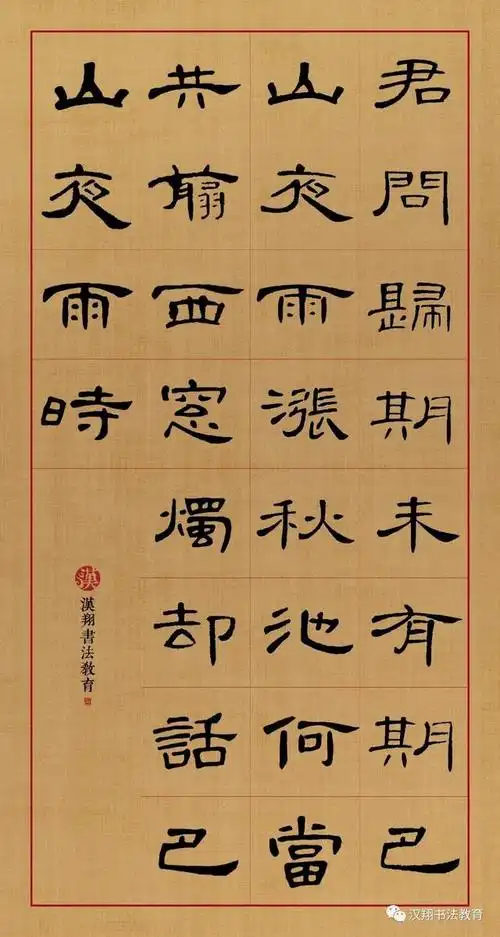 君問歸期未有期巴
山夜雨漲秋池何當
共翦西窓燭却話巴
山夜雨時
漢
漢翔書法教育
汉翔书法教育